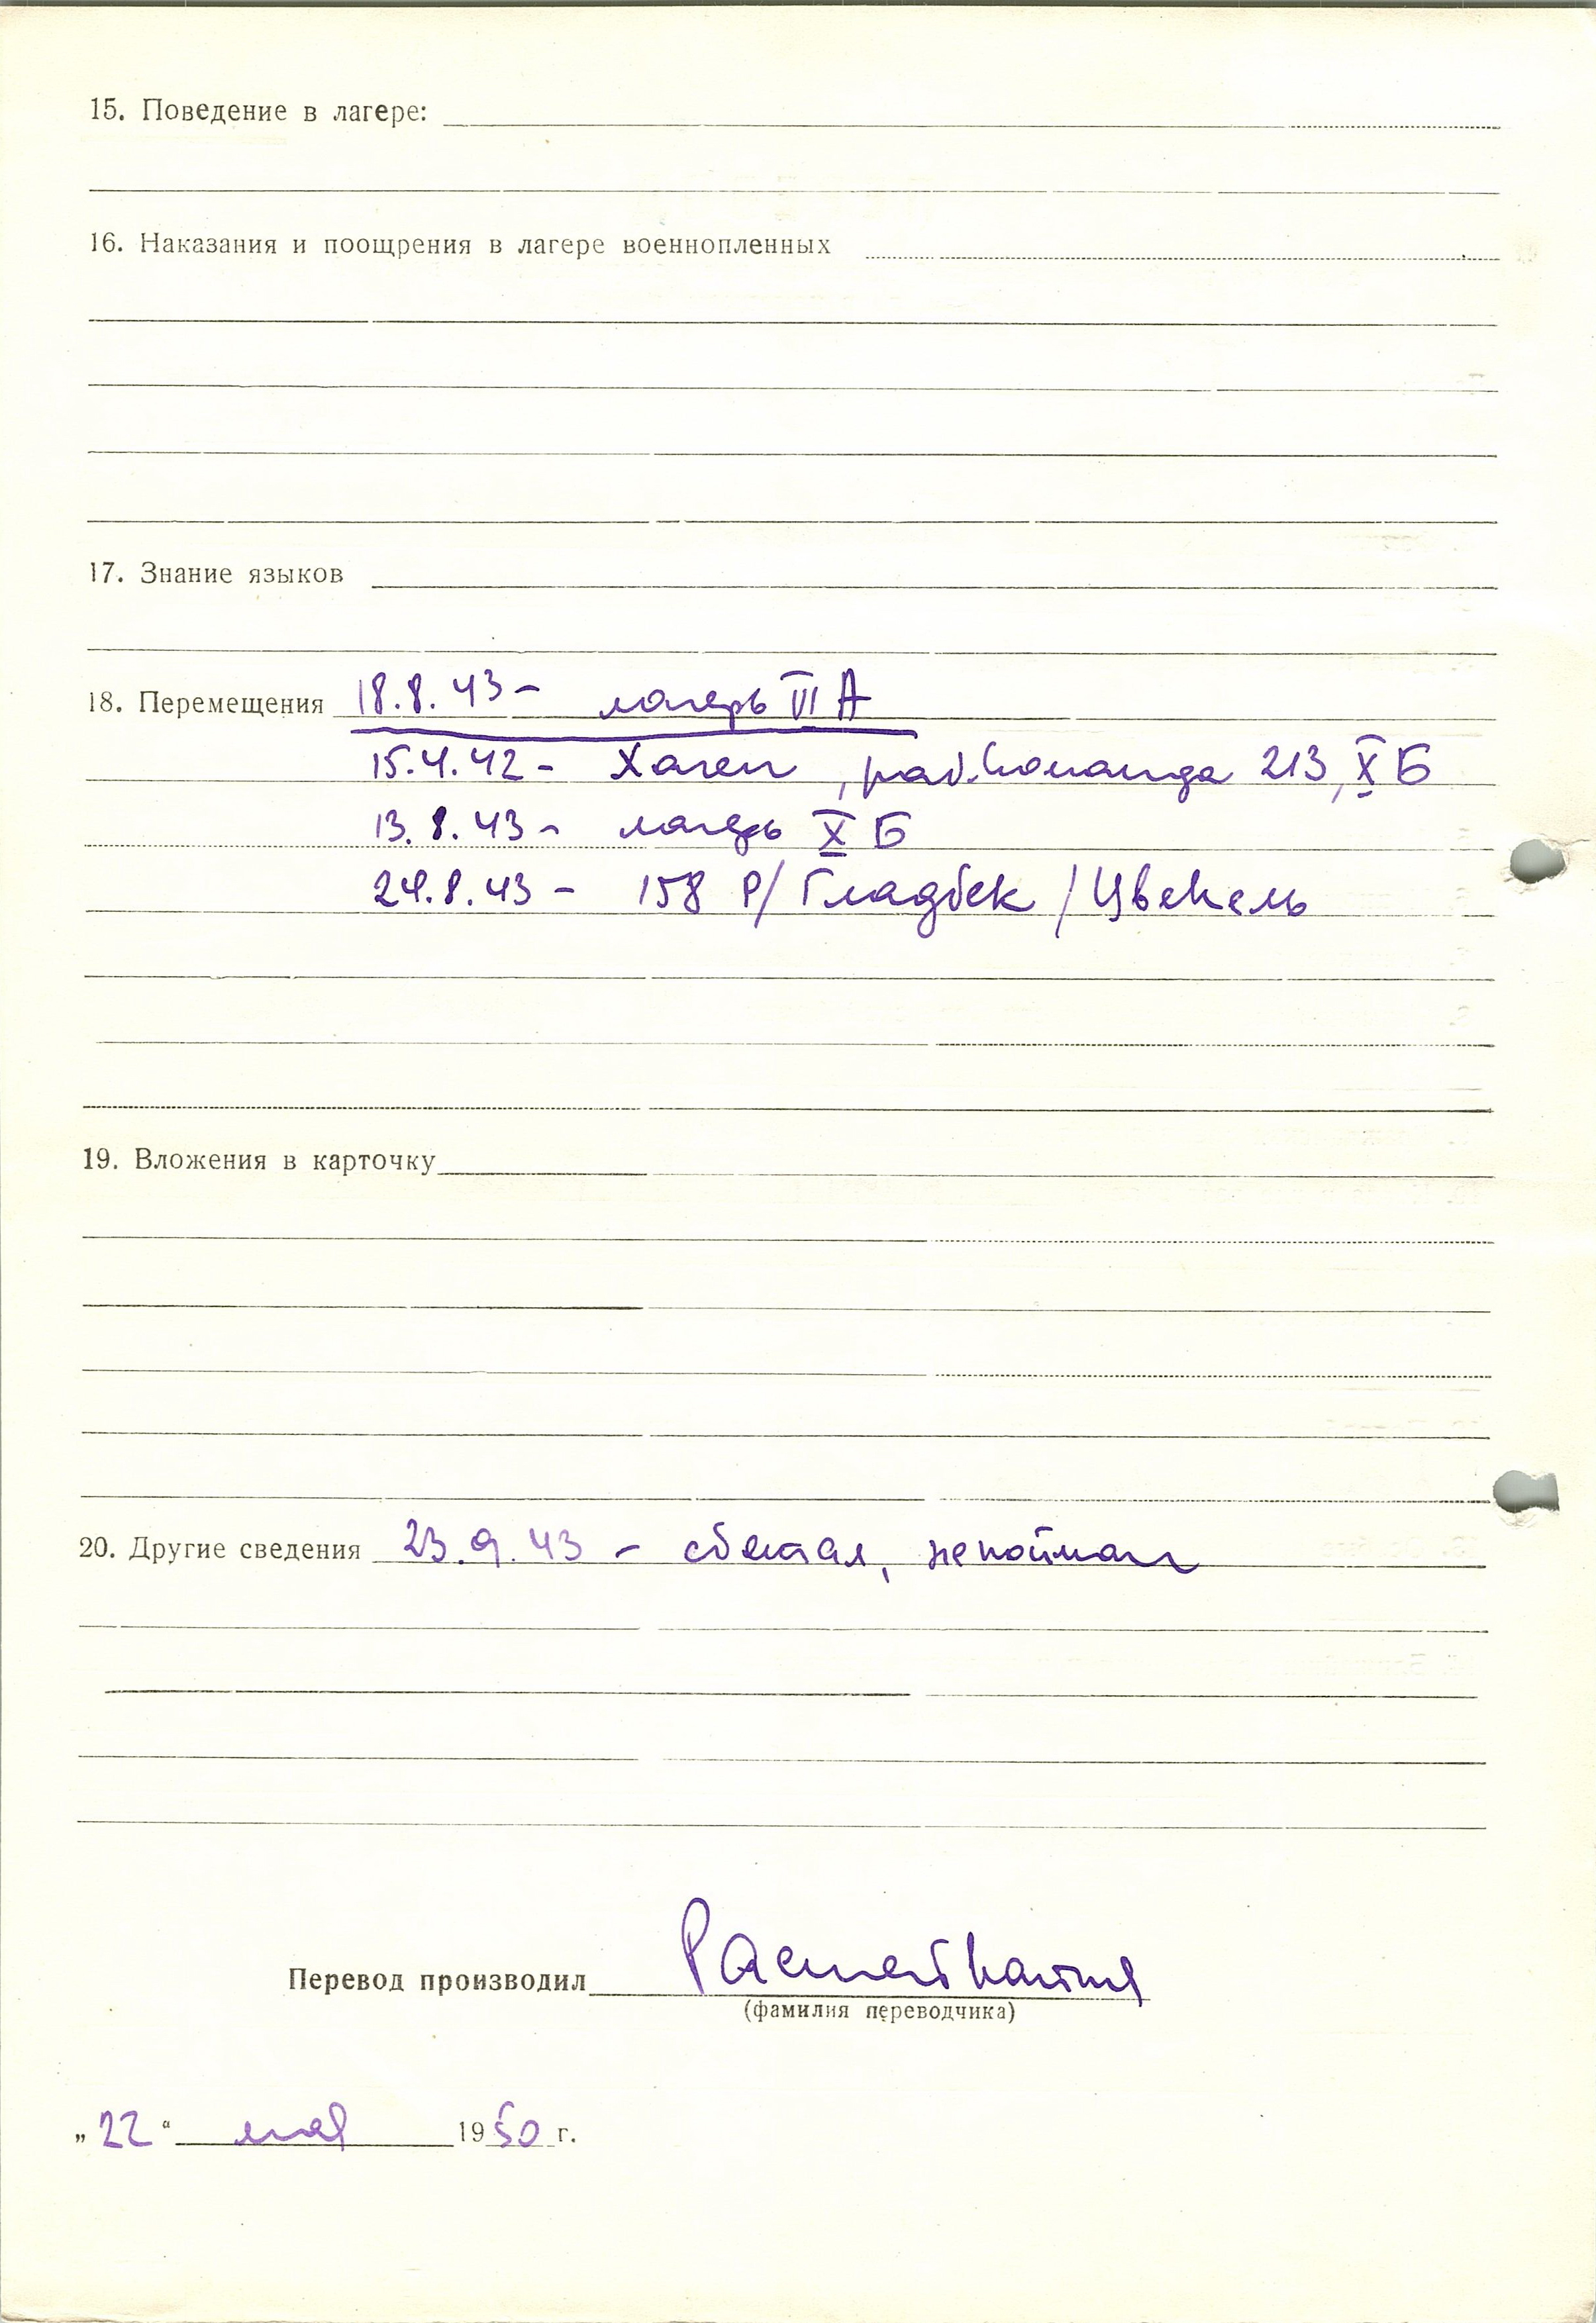 15. Поведение в лагере:
16. Наказания и поощрения в лагере военнопленных
17. Знание языков
18. Перемещения 18.8.43 - лагерь VI А
15.4.42 - Хаген, раб.команда 213, X Б
13.8.43 - лагерь X Б
24.8.43 - 158 Р/ Гладбек / Цвекель
19. Вложения в карточку
20. Другие сведения 23.9.43 - сбежал, не пойман
Перевод производил
(фамилия переводчика)
„22“ мая 1950 г.